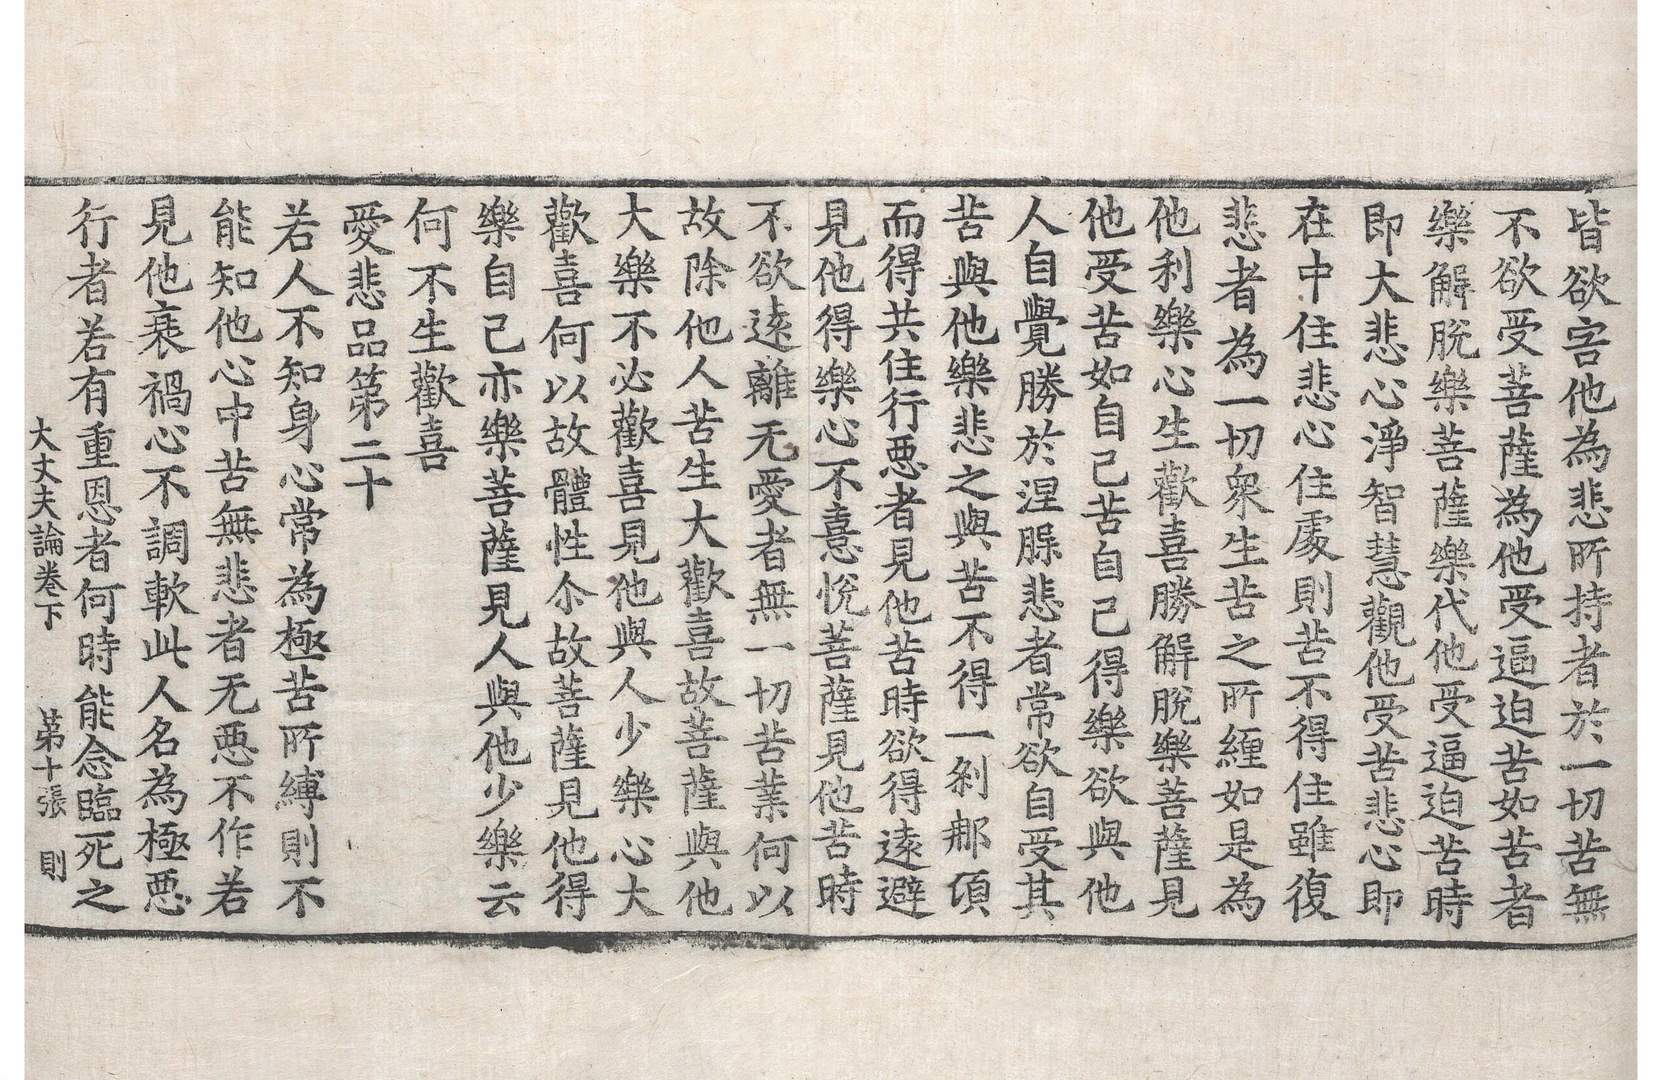 皆欲害他為悲所持者於一切苦無
不欲受菩薩為他受逼迫苦如苦者
樂解脫樂菩薩樂代他受逼迫苦時
即大悲心淨智慧觀他受苦悲心即
在中住悲心住處則苦不得住雖復
悲者為一切衆生苦之所纏如是為
他利樂心生歡喜勝解脫樂菩薩見
他受苦如自己苦自己得樂欲與他
人自覺勝於涅槃悲者常欲自受其
苦與他樂悲之與苦不得一刹那頃
而得共住行惡者見他苦時欲得遠避
見他得樂心不憙悅菩薩見他苦時
不欲遠離无愛者無一切苦業何以
故除他人苦生大歡喜故菩薩與他
大樂不必歡喜見他與人少樂心大
歡喜何以故體性尒故菩薩見他得
樂自己亦樂菩薩見人與他少樂云
何不生歡喜
愛悲品第二十
若人不知身心常為極苦所縛則不
能知他心中苦無悲者无惡不作若
見他衰禍心不調軟此人名為極惡
行者若有重恩者何時能念臨死之
大丈夫論卷下 第十張 則